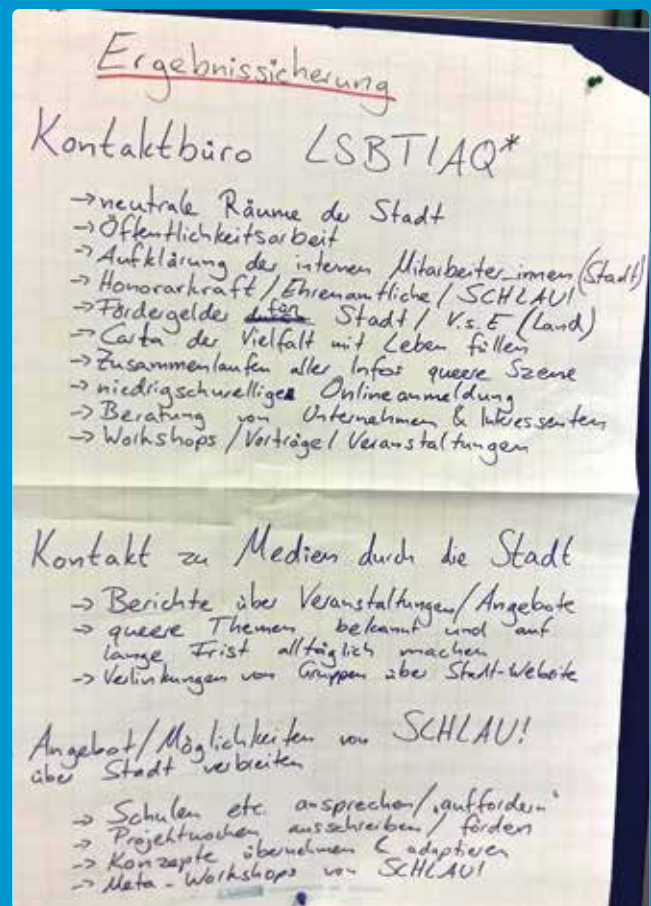 Ergebnissicherung
Kontaktbüro LSBTIAQ*
→ neutrale Räume der Stadt
→ Öffentlichkeitsarbeit
→ Aufklärung der internen Mitarbeiter_innen (Stadt)
→ Honorarkraft / Ehrenamtliche / SCHLAU!
→ Fördergelder Stadt / V.s.E (Land)
→ Carta der Vielfalt mit Leben füllen
→ Zusammenlaufen aller Infos queere Szene
→ niedrigschwellige Onlineanmeldung
→ Beratung von Unternehmen & Interessenten
→ Workshops / Vorträge / Veranstaltungen
Kontakt zu Medien durch die Stadt
→ Berichte über Veranstaltungen / Angebote
→ queere Themen bekannt und auf
lange Frist alltäglich machen
→ Verlinkungen von Gruppen über Stadt-Website
Angebot / Möglichkeiten von SCHLAU!
über Stadt verbreiten
→ Schulen etc. ansprechen / „auffordern“
→ Projektwochen ausschreiben / fördern
→ Konzepte übernehmen & adaptieren
→ Meta-Workshops von SCHLAU!